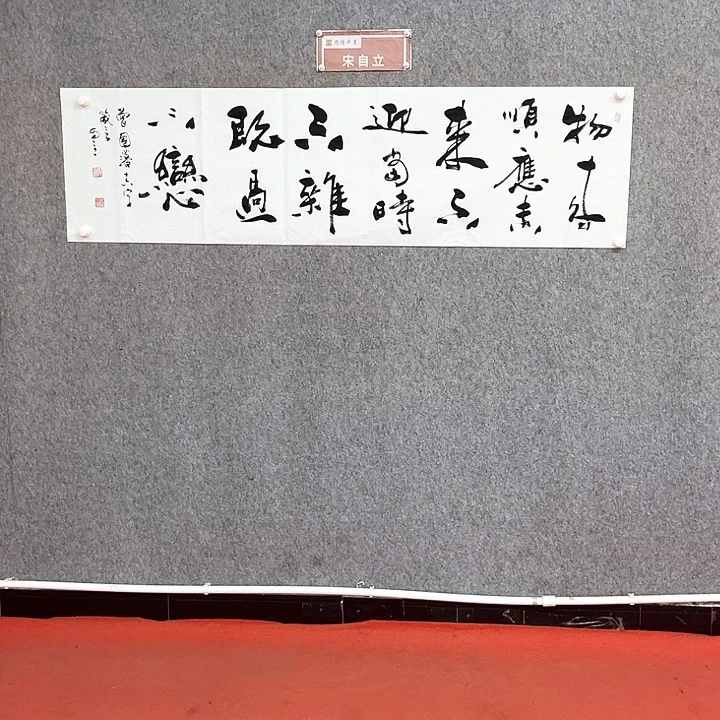 宋自立
物来
順應未
来不
迎當時
不雜
既過
不戀
曾國藩
自立